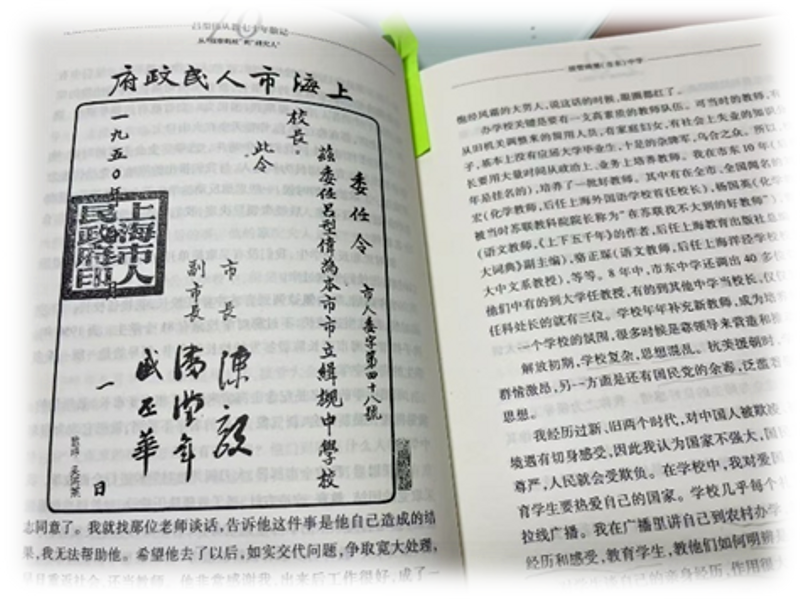 吕型伟从教七十年散记
从“观察蚂蚁”到“研究人”
上海市人民政府
委任令
市人委字第四十八號
兹委任呂型偉為本市市立緝椝中學校
校長
此令
市長 陳毅
副市長 潘漢年
盛丕華
一九五〇年
一
日
上海市人
民政府印
志同意了。我就找那位老师谈话,告诉他这件事是他自己造成的结
果,我无法帮助他。希望他去了以后,如实交代问题,争取宽大处理,
早日重返社会,还当教师。他非常感谢我,出来后工作很好,成了一
饱经风霜的大男人,说这话的时候,眼圈都红了。
办学校关键是要有一支高素质的教师队伍。可当时的教师,有
从旧机关调整来的留用人员,有家庭妇女,有社会上失业的知识分
子,基本上没有应届大学毕业生,十足的杂牌军,乌合之众。所以,
长要用大量时间从政治上、业务上培养教师。我在市东10年(
年是挂名的),培养了一批好教师。其中有在全市、全国闻名的
宏(化学教师,后任上海外国语学校首任校长),杨国英(化学
被当时苏联教科院院长称为“在苏联找不大到的好教师”),
(语文教师,《上下五千年》的作者,后任上海教育出版社总
大词典》副主编),骆正琛(语文教师,后任上海洋泾学校校
大中文系教授),等等。8年中,市东中学还调出40多位
他们中有的到大学任教授,有的到其他中学当校长,仅
任科处长的就有三位。学校年年补充新教师,成为培养
一个学校的氛围,很多时候是靠领导来营造和
解放初期,学校复杂,思想混乱。抗美援朝时,
群情激昂,另一方面是还有国民党的余毒,泛滥着
思想。
我经历过新、旧两个时代,对中国人被欺凌
境遇有切身感受,因此我认为国家不强大,国
尊严,人民就会受欺负。在学校中,我对爱国
育学生要热爱自己的国家。学校几乎每个
拉线广播。我在广播里讲自己到农村办学
经历和感受,教育学生,教他们如何明辨是
对学生谈自己的亲身经历,作用很大